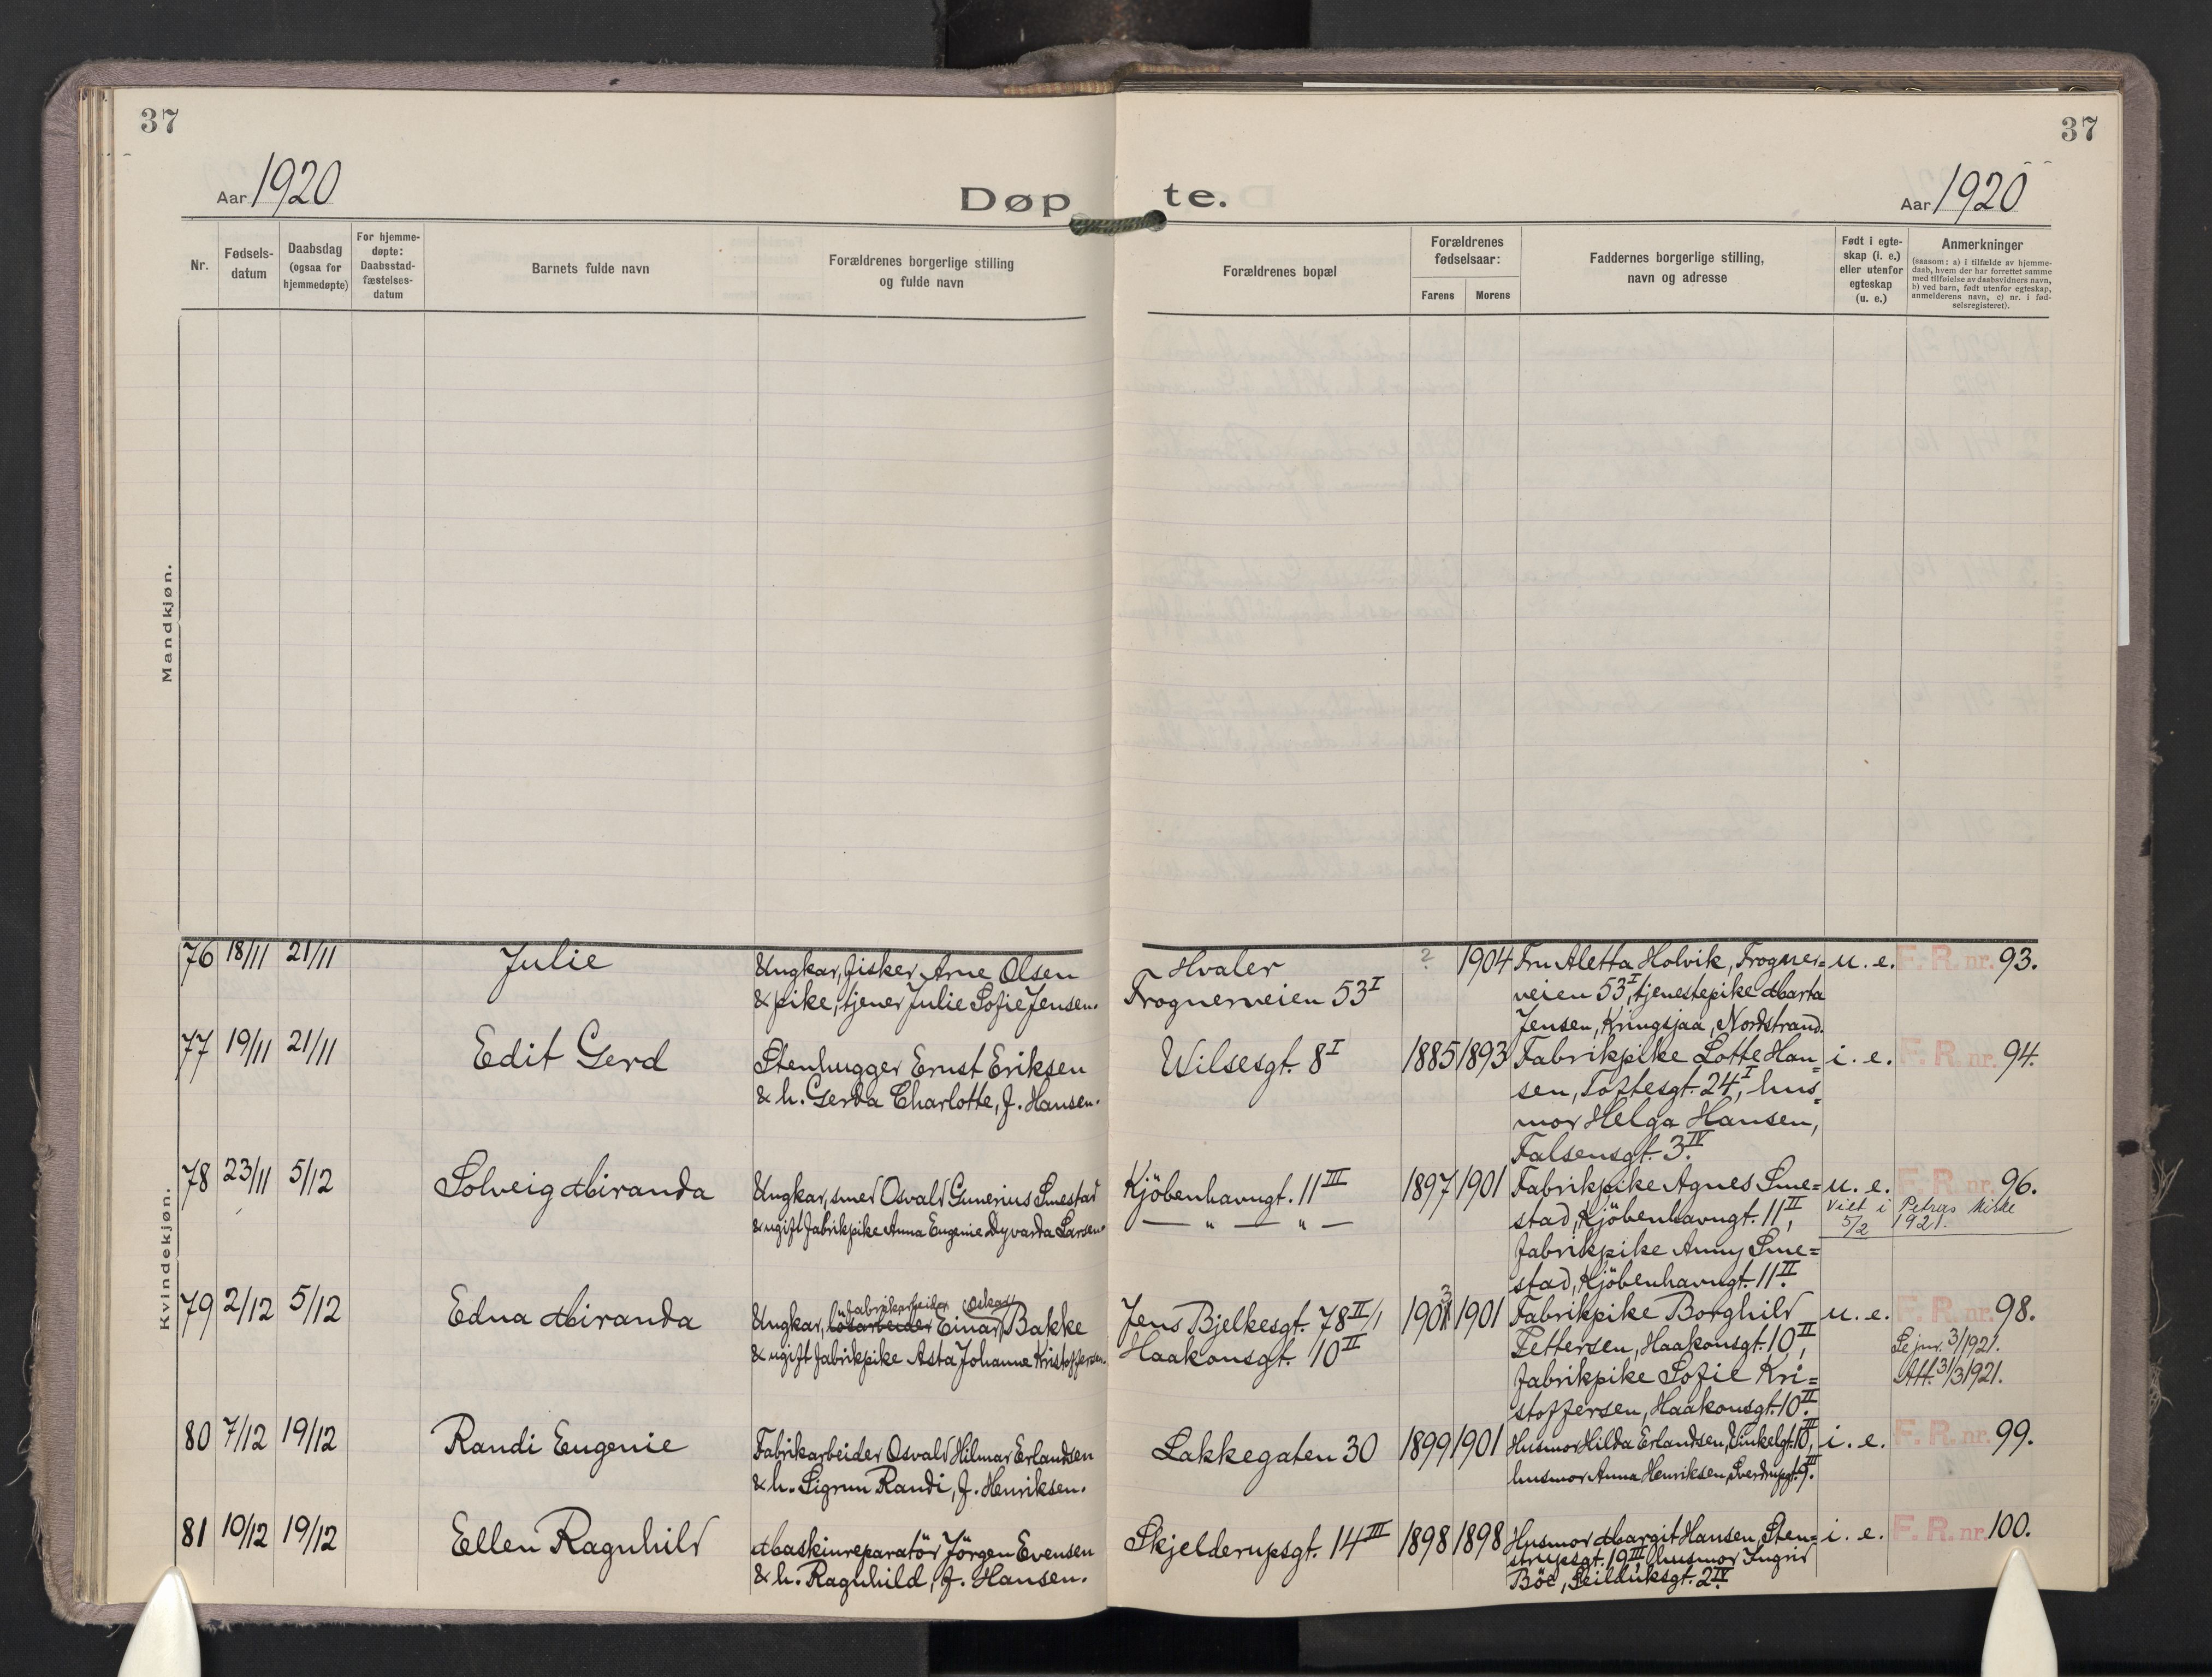 37
37
Aar 1920
Døpte.
Aar 1920
Nr.
Fødsels-
datum
Daabsdag
(ogsaa for
hjemmedøpte)
For hjemme-
døpte:
Daabsstad-
fæstelses-
datum
Barnets fulde navn
Forældrenes borgerlige stilling
og fulde navn
Forældrenes bopæl
Forældrenes
fødselsaar:
Farens
Morens
Faddernes borgerlige stilling,
navn og adresse
Født i egte-
skap (i. e.)
eller utenfor
egteskap
(u. e.)
Anmerkninger
(saasom: a) i tilfælde av hjemme-
daab, hvem der har forrettet samme
med tilføielse av daabsvidners navn,
b) ved barn, født utenfor egteskap,
anmelderens navn, c) nr. i fød-
selsregisteret).
Mandkjøn.
Kvindekjøn.
76 18/11 21/11 Julie
Ungkar, fisker Arne Olsen
& pike, tjener Julie Sofie Jensen.
Hvaler
Frognerveien 53 I
? 1904
Fru Aletta Holvik, Frogner=
veien 53 I, tjenestepike Marta
Jensen, Kringsjaa, Nordstrand.
u. e. F. R. nr. 93.
77 19/11 21/11 Edit Gerd
Stenhugger Ernst Eriksen
& h. Gerda Charlotte, f. Hansen.
Wilsesgt. 8 I
1885 1893
Fabrikpike Lotte Han=
sen, Toftesgt. 24 I, hus=
mor Helga Hansen,
Falsensgt. 3 IV.
i. e. F. R. nr. 94.
78 23/11 5/12 Solveig Miranda
Ungkar, smed Osvald Gunerius Smestad
& ugift fabrikpike Anna Eugenie Dyvarda Larsen.
Kjöbenhavngt. 11 III
— " — " —
1897 1901
Fabrikpike Agnes Sme=
stad, Kjöbenhavngt. 11 II,
fabrikpike Anny Sme=
stad, Kjöbenhavngt. 11 II.
u. e. F. R. nr. 96.
Viet i Petrus Kirke
5/2 1921.
79 2/12 5/12 Edna Miranda
fabrikarbeider Oskar
Ungkar, løsarbeider Einar Bakke
& ugift fabrikpike Asta Johanne Kristoffersen.
Jens Bjelkesgt. 78 II/1
Haakonsgt. 10 II
1903 1901
Fabrikpike Borghild
Pettersen, Haakonsgt. 10 II,
fabrikpike Sofie Kri=
stoffersen, Haakonsgt. 10 II.
u. e. F. R. nr. 98.
Se jnr. 3/1921.
Att. 31/3 1921.
80 7/12 19/12 Randi Eugenie
Fabrikarbeider Osvald Hilmar Erlandsen
& h. Sigrun Randi, f. Henriksen.
Lakkegaten 30
1899 1901
Husmor Hilda Erlandsen, Vinkelgt. 10 III,
husmor Anna Henriksen, Sverdrupgt. 9 III.
i. e. F. R. nr. 99.
81 10/12 19/12 Ellen Ragnhild
Maskinreparatör Jörgen Evensen
& h. Ragnhild, f. Hansen.
Skjelderupsgt. 14 III
1898 1898
Husmor Margit Hansen, Sten=
strupsgt. 19 III, husmor Ingrid
Böe, Seilduksgt. 2 IV.
i. e. F. R. nr. 100.